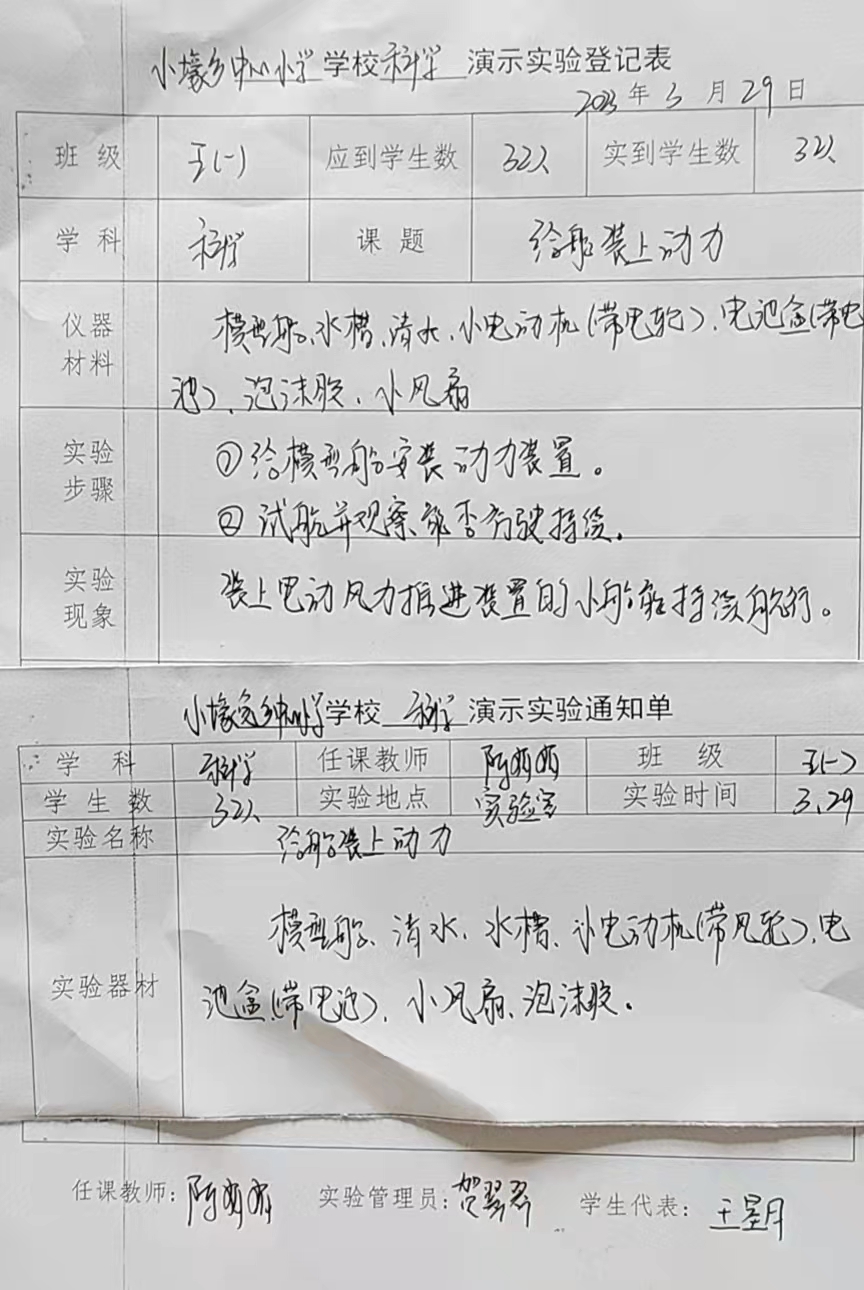 小壕乡中心小学 学校 科学 演示实验登记表
2023 年 3 月 29 日
班 级 五(一) 应到学生数 32人 实到学生数 32人
学 科 科学 课 题 给船装上动力
仪器
材料
模型船、水槽、清水、小电动机(带电轮)、电池盒(带电
池)、泡沫胶、小风扇
实验
步骤
①给模型船安装动力装置。
②试航并观察能否行驶持续。
实验
现象
装上电动风力推进装置的小船能持续航行。
学校 科学 演示实验通知单
学 科 科学 任课教师 班 级 五(一)
学 生 数 32人 实验地点 实验室 实验时间 3.29
实验名称 给船装上动力
模型船、清水、水槽、小电动机(带风轮)、电
实验器材
池盒(带电池)、小风扇、泡沫胶。
任课教师: 实验管理员: 贺翠君 学生代表: 王星月